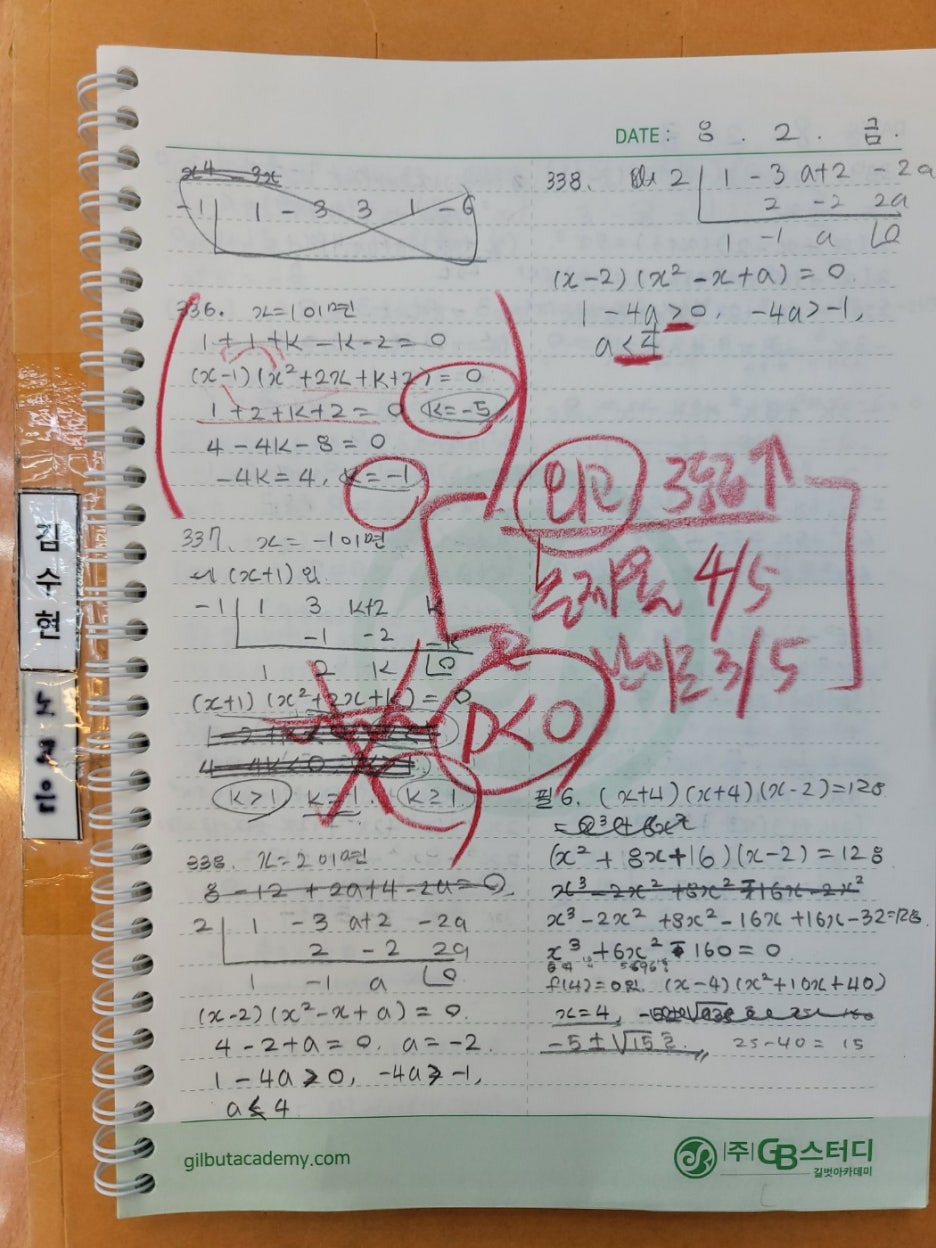 DATE : 8 . 2 . 금.
x⁴ - 3x
-1 | 1 - 3 3 1 - 6
336. x=1이면
1 + 1 + k - k - 2 = 0
(x-1)(x²+2x+k+2) = 0
1 + 2 + k + 2 = 0 k=-5
4 - 4k - 8 = 0
-4k = 4, k = -1
337. x = -1이면
(x+1)인
-1 | 1 3 k+2 k
-1 -2 -k
1 2 k 0
(x+1)(x²+2x+k) = 0
k>1 k=1. k≥1
338. x=2이면
8 - 12 + 2a+4 - 2a = 0
2 | 1 - 3 a+2 - 2a
2 - 2 2a
1 -1 a 0
(x-2)(x²-x+a) = 0.
4 - 2 + a = 0. a = -2.
1 - 4a ≥ 0, -4a ≥ -1,
a ≤ 4
338. 2 | 1 - 3 a+2 - 2a
2 - 2 2a
1 -1 a 0
(x-2)(x²-x+a) = 0
1 - 4a > 0, -4a > -1,
a < 4
외고 3등급↑
4/5
난이도 3/5
D<0
필 6. (x+4)(x+4)(x-2)=128
(x²+8x+16)(x-2) = 128
x³-2x²+8x²-16x+16x-32=128
x³+6x²-160 = 0
f(4)=0인 (x-4)(x²+10x+40)
x=4,
-5±√15 i 25-40 = 15
김수현
gilbutacademy.com
(주)GB스터디
길벗아카데미